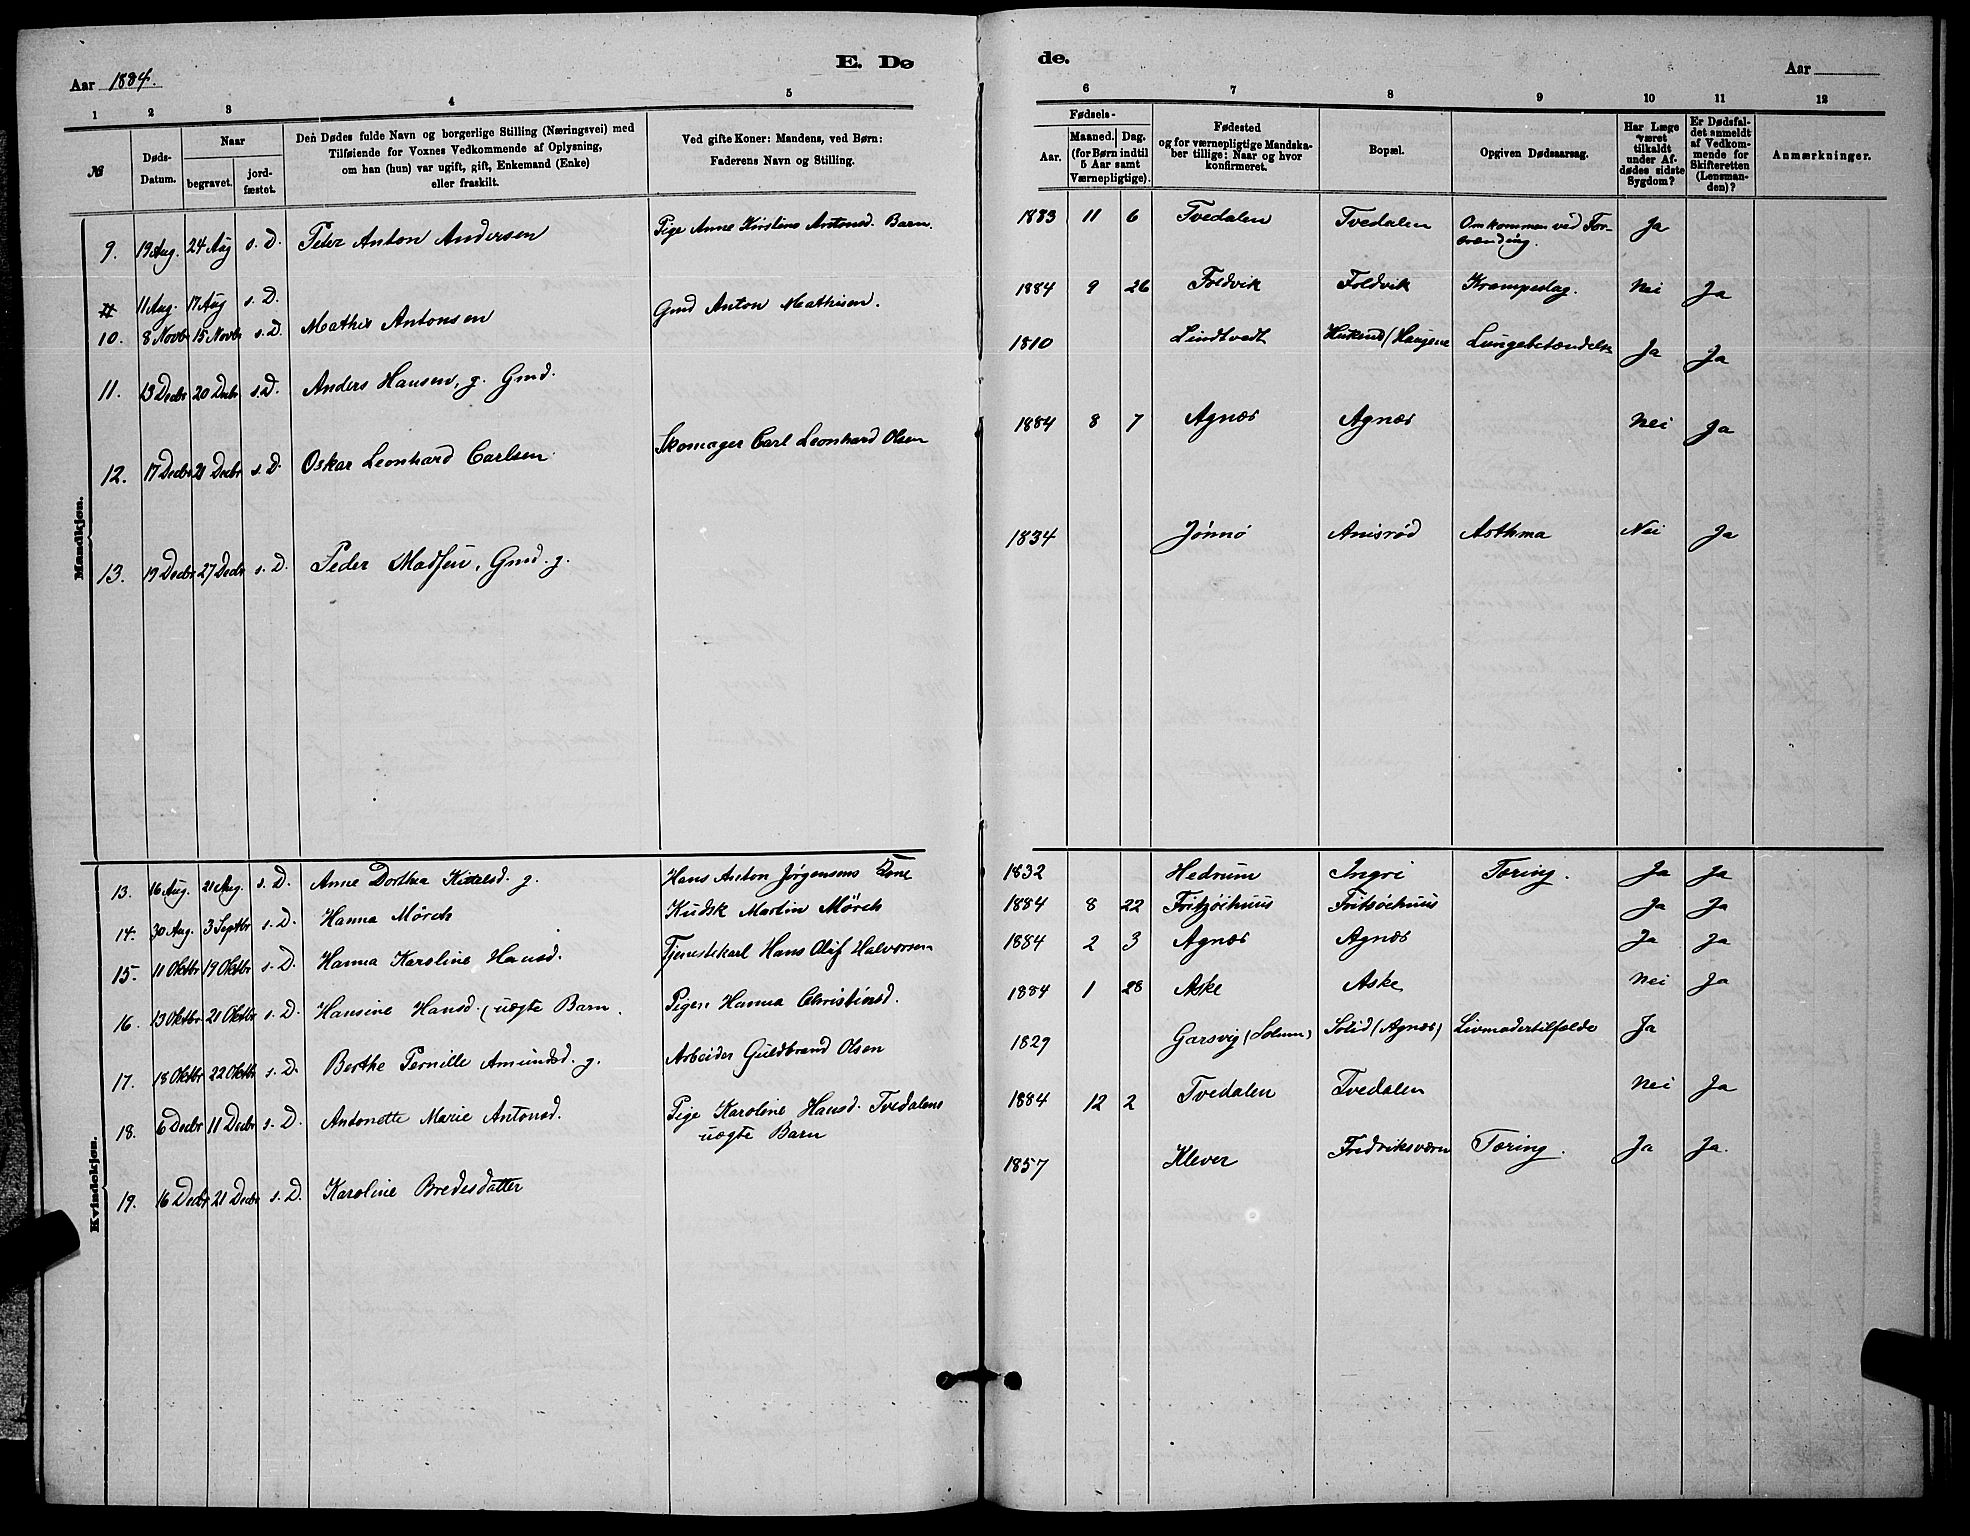 Aar 1884.
E. Dø
de.
Aar
1 2 3 4 5 6 7 8 9 10 11 12
№
Døds-
Datum.
Naar
begravet.
jord-
fæstet.
Den Dødes fulde Navn og borgerlige Stilling (Næringsvei) med
Tilføiende for Voxnes Vedkommende af Oplysning,
om han (hun) var ugift, gift, Enkemand (Enke)
eller fraskilt.
Ved gifte Koner: Mandens, ved Børn:
Faderens Navn og Stilling.
Fødsels-
Aar.
Maaned.
Dag.
(for Børn indtil
5 Aar samt
Værnepligtige).
Fødested
og for værnepligtige Mandska-
ber tillige: Naar og hvor
konfirmeret.
Bopæl.
Opgiven Dødsaarsag.
Har Læge
været
tilkaldt
under Af-
dødes sidste
Sygdom?
Er Dødsfal-
det anmeldt
af Vedkom-
mende for
Skifteretten
(Lensman-
den)?
Anmærkninger.
Mandkjøn.
9. 19 Aug. 24 Aug s. D. Peter Anton Andersen Pige Anne Kirstine Antonsd. Barn. 1883 11 6 Tvedalen Tvedalen Omkommen ved For-
brænding. Ja
11 Aug. 17 Aug s. D.
10. 8 Novbr 15 Novbr s. D. Mathis Antonsen Gmd Anton Mathisen. 1884 9 26 Foldvik Foldvik Krampeslag. Nei Ja
11. 13 Decbr 20 Decbr s. D. Anders Hansen, g. Gmd. 1810 Lindtvedt (Haugene Lungebetændelse Ja Ja
12. 17 Decbr 21 Decbr s. D. Oskar Leonhard Carlsen. Skomager Carl Leonhard Olsen 1884 8 7 Agnæs Agnæs Nei Ja
13. 19 Decbr 27 Decbr s. D. Peder Madsen, Gmd. g. 1834 Jønnø Anisrød Asthma Nei Ja
Kvindekjøn.
13. 16 Aug. 21 Aug. s. D. Anne Dorthea Kittelsd. g. Hans Anton Jørgensens Kone 1832 Hedrum Ingri Tæring. Ja Ja
14. 30 Aug. 3 Septbr s. D. Hanna Mörch Kudsk Martin Mörch 1884 8 22 Fritzöehuus Fritsöehuus Ja Ja
15. 11 Oktbr 19 Oktbr s. D. Hanna Karoline Hansd. Tjenestekarl Hans Oluf Halvorsen 1884 2 3 Agnæs Agnæs Ja Ja
16. 13 Oktbr 21 Oktbr s. D. Hansine Hansd. (uægte Barn. Pigen Hanna Christiansd. 1884 1 28 Aske Aske Nei Ja
17. 18 Oktbr 22 Oktbr s. D. Berthe Pernille Amundsd. g. Arbeider Guldbrand Olsen 1829 Garsvig (Solum) Solid (Agnæs) Livmodertilfælde Ja
18. 6 Decbr 11 Decbr s. D. Antonette Marie Antonsd. Pige Karoline Hansd. Tvedalens
uægte Barn 1884 12 2 Tvedalen Tvedalen Nei Ja
19. 16 Decbr 21 Decbr s. D. Karoline Bredesdatter 1857 Klever Fredriksværn Tæring. Ja Ja.